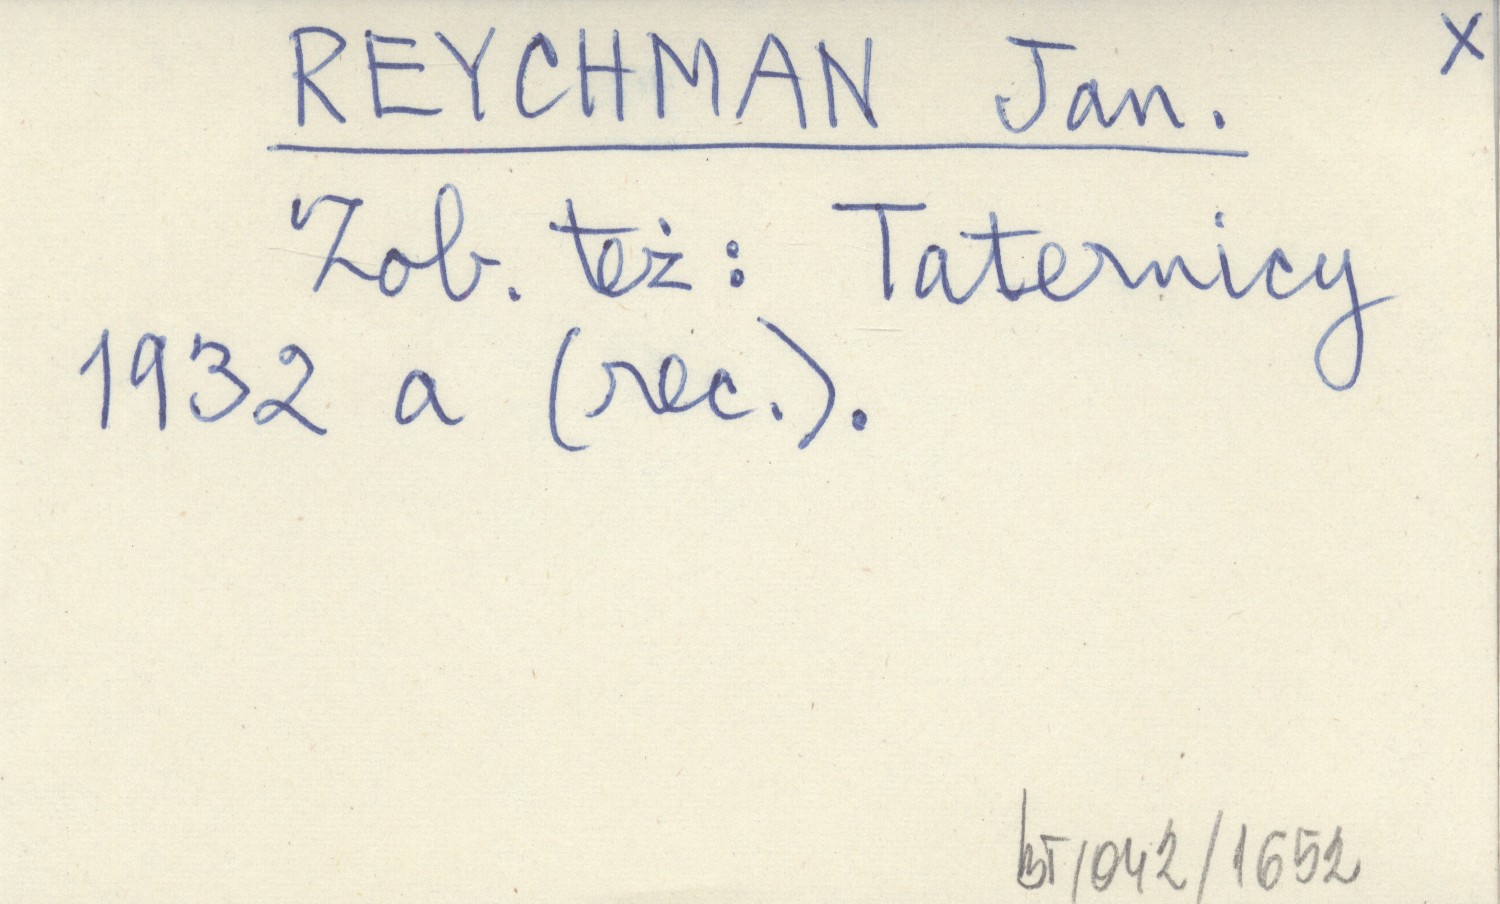 X
REYCHMAN Jan.
Zob. też: Taternicy
1932 a (rec.).
BT/042/1652